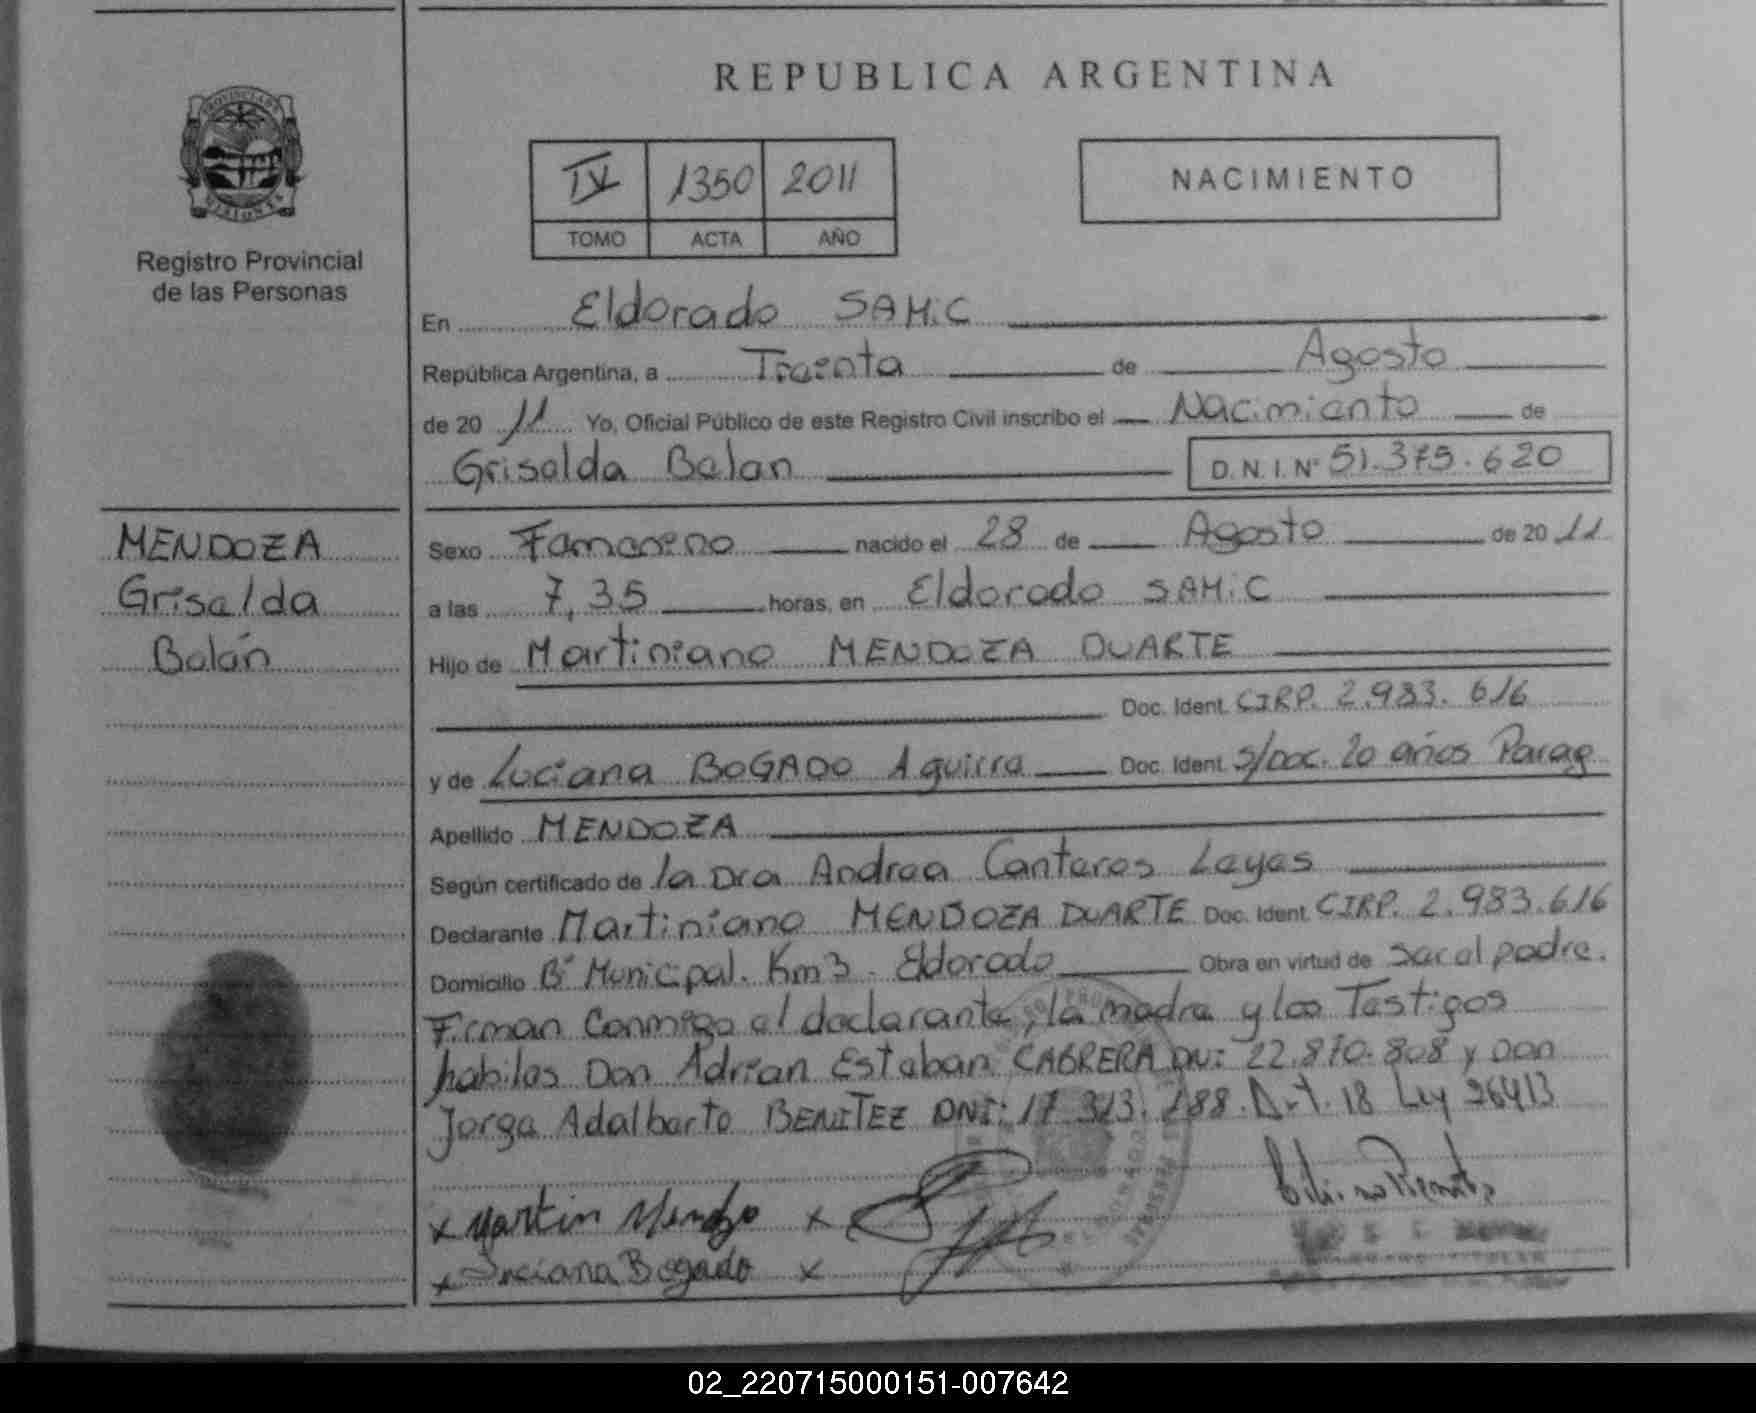 REPUBLICA ARGENTINA
IV 1350 2011
TOMO ACTA AÑO
NACIMIENTO
PROVINCIA DE MISIONES
Registro Provincial
de las Personas
En Eldorado SAMiC
República Argentina, a Treinta de Agosto
de 20 11 Yo, Oficial Público de este Registro Civil inscribo el Nacimiento de
Griselda Belen D.N.I.Nº 51.375.620
MENDOZA
Griselda
Belén
Sexo Femenino nacido el 28 de Agosto de 20 11
a las 7,35 horas, en Eldorado SAMiC
Hijo de Martiniano MENDOZA DUARTE
Doc. Ident. CIRP. 2.983.616
y de Luciana BOGADO Aguirre Doc. Ident. S/Doc. 20 años Parag
Apellido MENDOZA
Según certificado de la Dra Andrea Canteros Leyes
Declarante Martiniano MENDOZA DUARTE Doc. Ident. CIRP. 2.983.616
Domicilio Bº Municipal. Km3. Eldorado Obra en virtud de ser el padre.
Firman Conmigo el declarante, la madre y los Testigos
habiles Don Adrian Esteban CABRERA DNI: 22.870.808 y Don
Jorge Adalberto BENITEZ DNI: 17.313.288. Art. 18 Ley 26413
x Martin Mendoza x
x Luciana Bogado x
ELDORADO
02_220715000151-007642